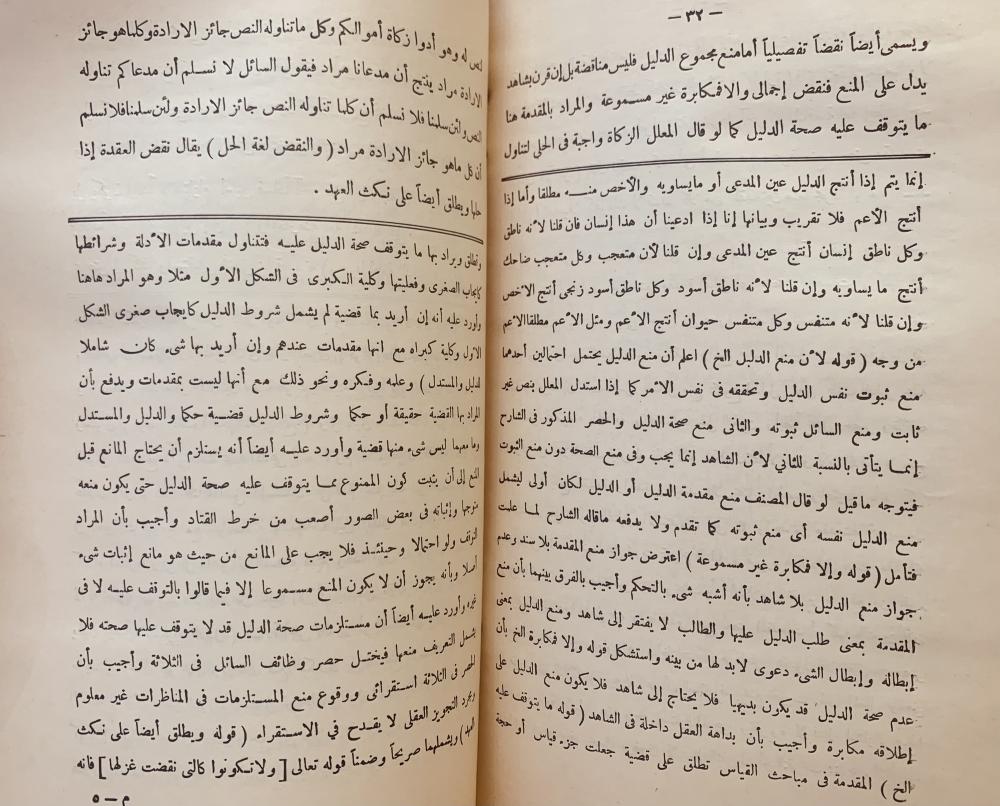 — ٣٢ —
ويسمى أيضاً نقضاً تفصيلياً أمامنع مجموع الدليل فليس مناقضة بل إن قرن بشاهد
يدل على المنع فنقض إجمالى والافمكابرة غير مسموعة والمراد بالمقدمة هنا
ما يتوقف عليه صحة الدليل كما لو قال المعلل الزكاة واجبة فى الحلى لتناول
إنما يتم إذا أنتج الدليل عين المدعى أو مايساويه والأخص منه مطلقا وأما إذا
أنتج الأعم فلا تقريب وبيانها إنا إذا ادعينا أن هذا إنسان فان قلنا لأنه ناطق
وكل ناطق إنسان أنتج عين المدعى وإن قلنا لأن متعجب وكل متعجب ضاحك
أنتج ما يساويه وإن قلنا لأنه ناطق أسود وكل ناطق أسود زنجى أنتج الأخص
وإن قلنا لأنه متنفس وكل متنفس حيوان أنتج الأعم ومثل الأعم مطلقا الأعم
من وجه ( قوله لأن منع الدليل الخ ) اعلم أن منع الدليل يحتمل احتمالين أحدهما
منع ثبوت نفس الدليل وتحققه فى نفس الأمر كما إذا استدل المعلل بنص غير
ثابت ومنع السائل ثبوته والثانى منع صحة الدليل والحصر المذكور فى الشارح
إنما يتأتى بالنسبة للثانى لأن الشاهد إنما يجب وفى منع الصحة دون منع الثبوت
فيتوجه ماقيل لو قال المصنف منع مقدمة الدليل أو الدليل لكان أولى ليشمل
منع الدليل نفسه أى منع ثبوته كما تقدم ولا يدفعه ماقاله الشارح لما علمت
فتأمل ( قوله وإلا فمكابرة غير مسموعة ) اعترض جواز منع المقدمة بلا سند وعدم
جواز منع الدليل بلا شاهد بأنه أشبه شىء بالتحكم وأجيب بالفرق بينهما بأن منع
المقدمة بمعنى طلب الدليل عليها والطالب لا يفتقر إلى شاهد ومنع الدليل بمعنى
إبطاله وإبطال الشىء دعوى لابد لها من بينه واستشكل قوله وإلا فمكابرة الخ بأن
عدم صحة الدليل قد يكون بديهيا فلا يحتاج إلى شاهد فلا يكون منع الدليل على
إطلاقه مكابرة وأجيب بأن بداهة العقل داخلة فى الشاهد ( قوله ما يتوقف عليه
الخ ) المقدمة فى مباحث القياس تطلق على قضية جعلت جزء قياس أو حجة
له وهو أدوا زكاة أموالكم وكل ماتناوله النص جائز الارادة وكلماهو جائز
الارادة مراد ينتج أن مدعانا مراد فيقول السائل لا نسلم أن مدعاكم تناوله
النص ولئن سلمنا فلا نسلم أن كلما تناوله النص جائز الارادة ولئن سلمنا فلا نسلم
أن كل ماهو جائز الارادة مراد ( والنقض لغة الحل ) يقال نقض العقدة إذا
حلها ويطلق أيضاً على نكث العهد .
وتطلق ويراد بها ما يتوقف صحة الدليل عليه فتتناول مقدمات الأدلة وشرائطها
كايجاب الصغرى وفعليتها وكلية الكبرى فى الشكل الأول مثلا وهو المراد هاهنا
وأورد عليه أنه إن أريد بما قضية لم يشمل شروط الدليل كايجاب صغرى الشكل
الأول وكلية كبراه مع انها مقدمات عندهم وإن أريد بها شىء كان شاملا
للدليل والمستدل ) وعلمه وفكره ونحو ذلك مع أنها ليست بمقدمات ويدفع بأن
المراد بها القضية حقيقة أو حكما وشروط الدليل قضية حكما والدليل والمستدل
وما معهما ليس شىء منها قضية وأورد عليه أيضاً أنه يستلزم أن يحتاج المانع قبل
المنع إلى أن يثبت كون الممنوع مما يتوقف عليه صحة الدليل حتى يكون منعه
موجها وإثباته فى بعض الصور أصعب من خرط القتاد وأجيب بأن المراد
التوقف ولو احتمالا وحينئذ فلا يجب على المانع من حيث هو مانع إثبات شىء
أصلا وبأنه يجوز أن لا يكون المنع مسموعا إلا فيما قالوا بالتوقف عليه لا فى
غيره وأورد عليه أيضاً أن مستلزمات صحة الدليل قد لا يتوقف عليها صحته فلا
يشمل التعريف منعها فيختل حصر وظائف السائل فى الثلاثة وأجيب بأن
الحصر فى الثلاثة استقرائى ووقوع منع المستلزمات فى المناظرات غير معلوم
ومجرد التجويز العقلى لا يقدح في الاستقراء ( قوله ويطلق أيضاً على نكث
العهد ) ويشملهما صريحاً وضمناً قوله تعالى [ ولا تكونوا كالتى نقضت غزلها ] فانه
م — ٥